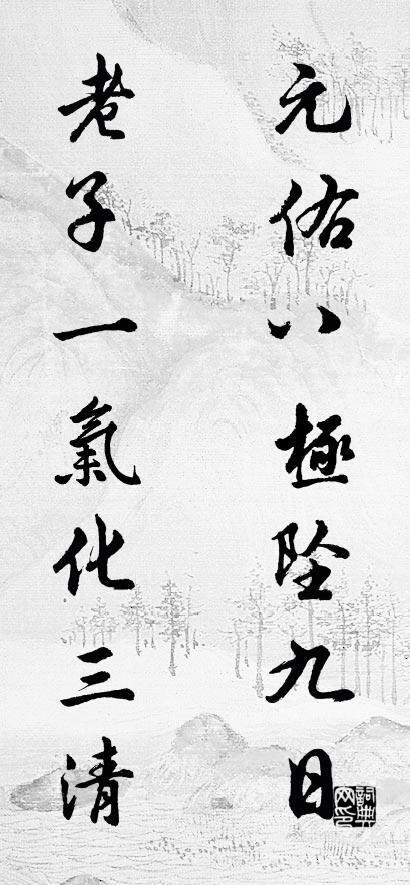 元佑八極坠九日
老子一氣化三清
詞典
网印